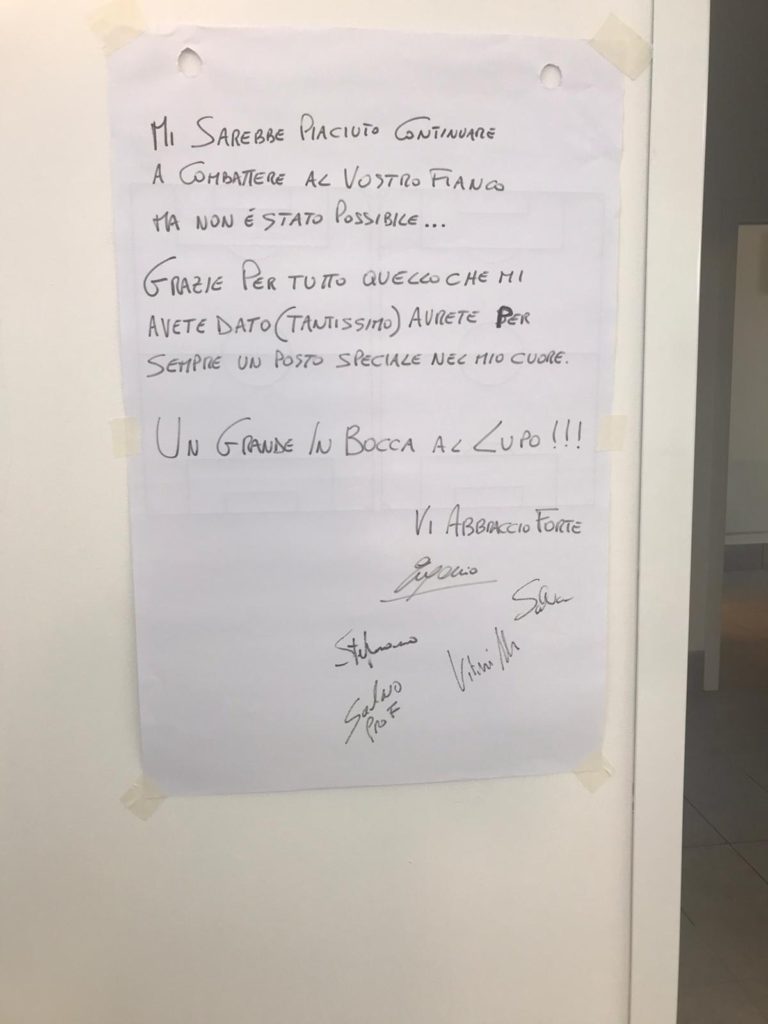 MI SAREBBE PIACIUTO CONTINUARE
A COMBATTERE AL VOSTRO FIANCO
MA NON É STATO POSSIBILE...
GRAZIE PER TUTTO QUELLO CHE MI
AVETE DATO (TANTISSIMO) AVRETE PER
SEMPRE UN POSTO SPECIALE NEL MIO CUORE.
UN GRANDE IN BOCCA AL LUPO!!!
VI ABBRACCIO FORTE
Eugenio
Stefano
PROF